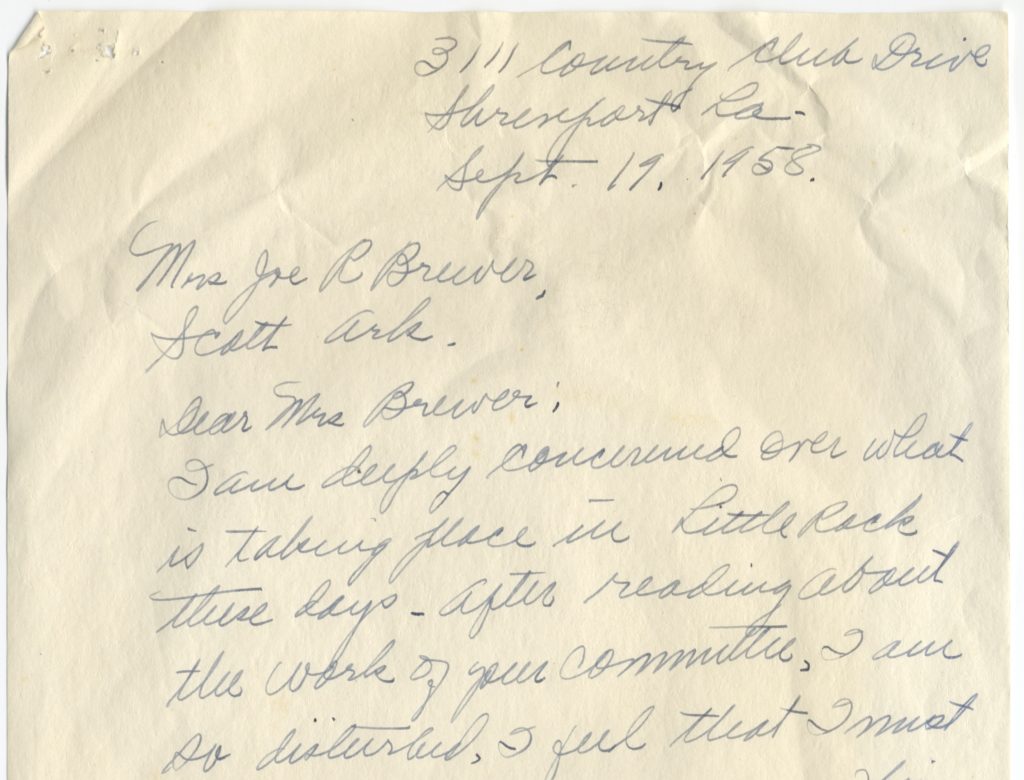 3111 Country Club Drive
Shreveport La-
Sept. 19, 1958.
Mrs Joe R Brewer,
Scott Ark.
Dear Mrs Brewer;
I am deeply concerned over what
is taking place in Little Rock
these days - After reading about
the work of your committee, I am
so disturbed, I feel that I must